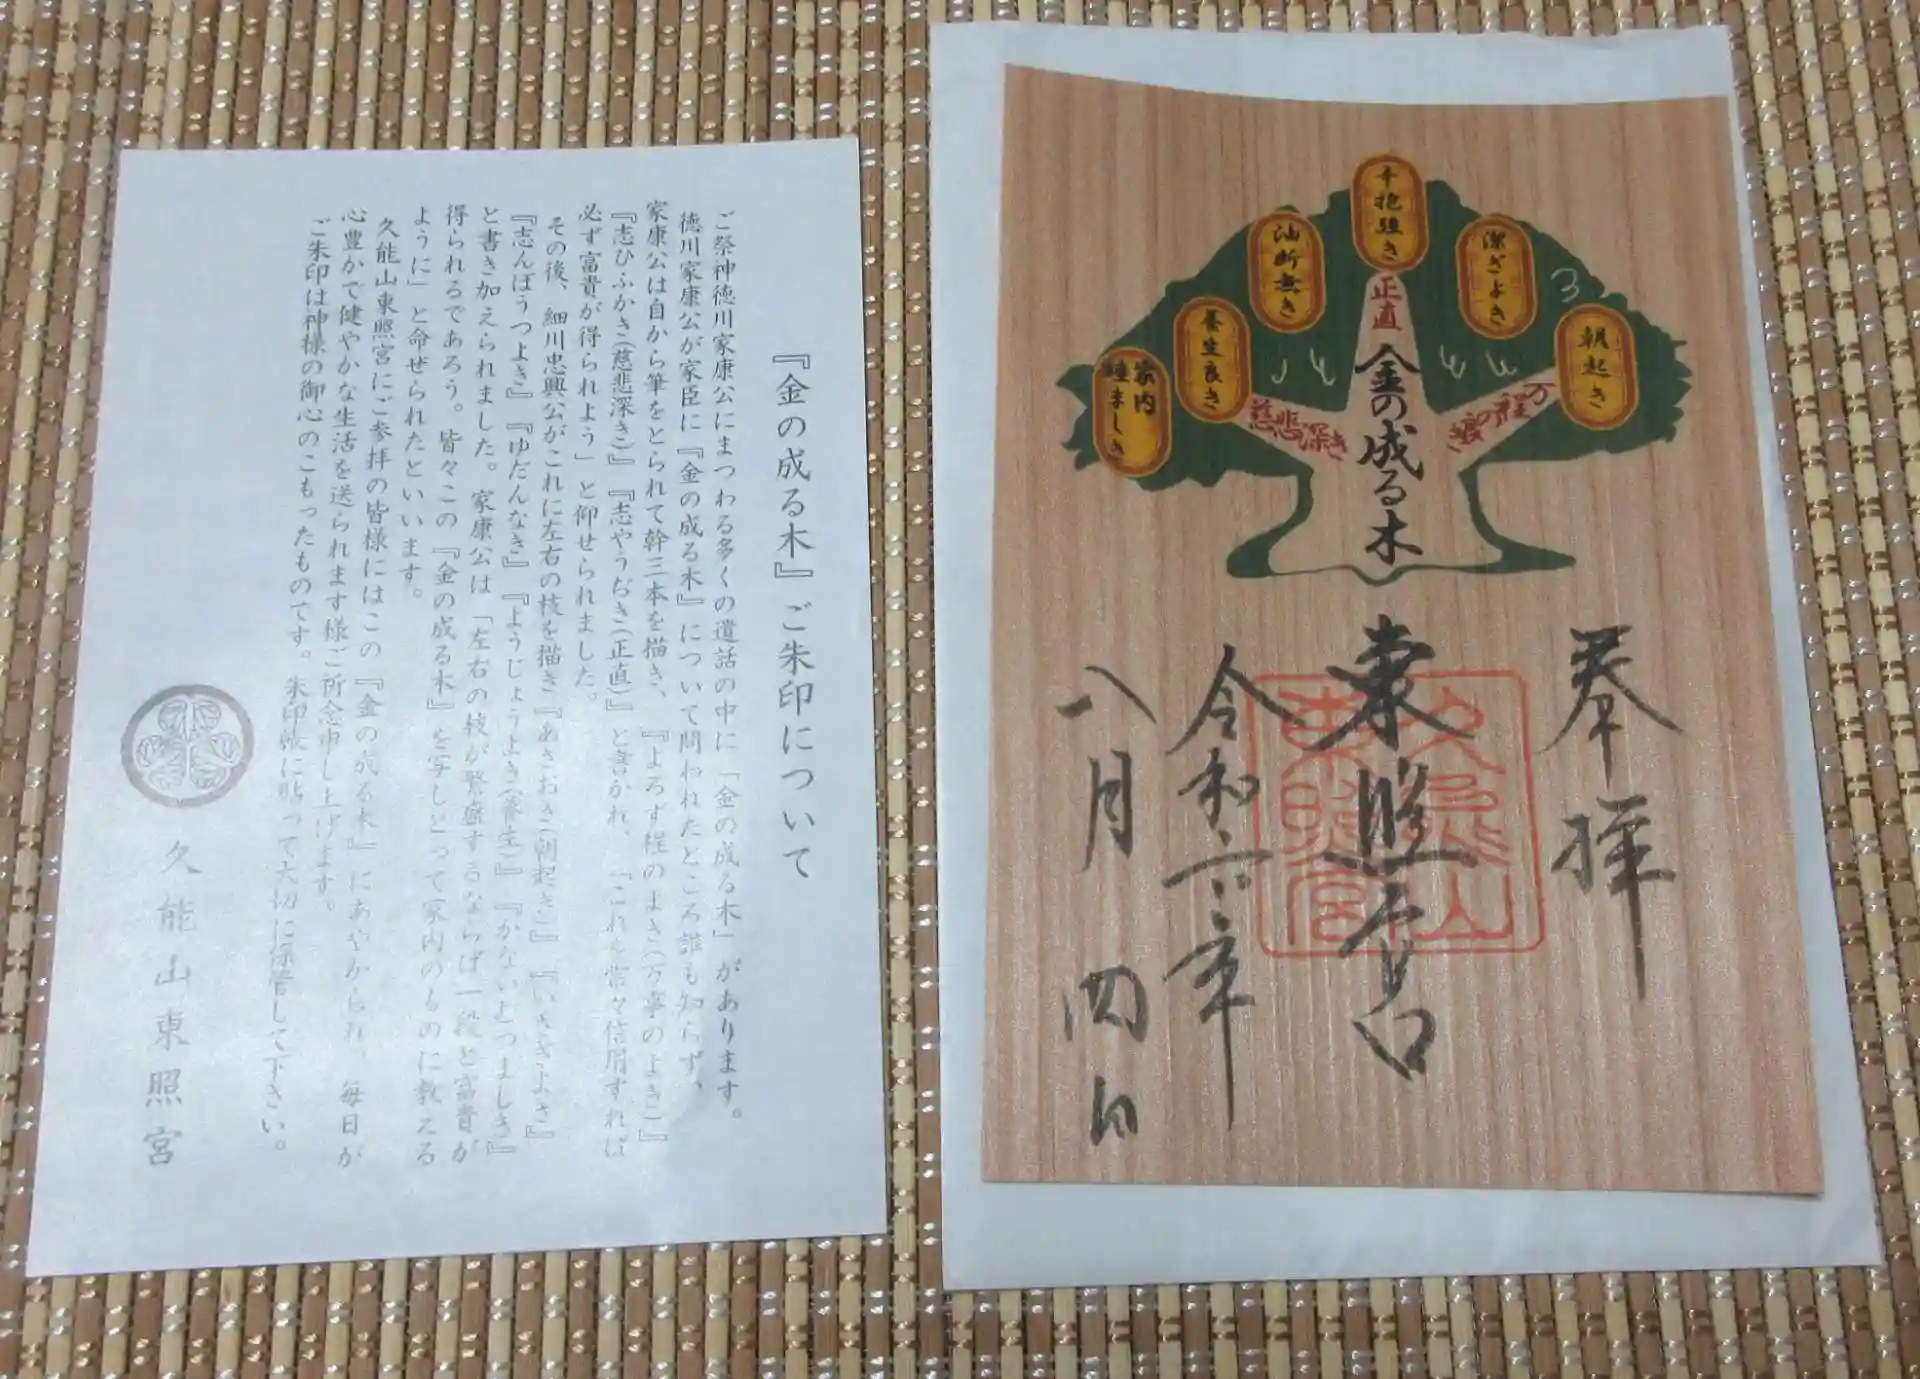 『金の成る木』ご朱印について
ご祭神徳川家康公にまつわる多くの遺話の中に「金の成る木」があります。
徳川家康公が家臣に『金の成る木』について問われたところ誰も知らず、
家康公は自から筆をとられて幹三本を描き、『よろず程のよき(万事のよき)』
『志ひふかき(慈悲深き)』『志やうぢき(正直)』と書かれ、「これを常々信用すれば
必ず富貴が得られよう」と仰せられました。
その後、細川忠興公がこれに左右の枝を描き『あさおき(朝起き)』『いさぎよき』
『志んぼうつよき』『ゆだんなき』『ようじょうよき(養生)』『かないむつましき』
と書き加えられました。家康公は「左右の枝が繁盛するならば一段と富貴が
得られるであろう。皆々この『金の成る木』を写しとって家内のものに教える
ように」と命ぜられたといいます。
久能山東照宮にご参拝の皆様にはこの『金の成る木』にあやかられ、毎日が
心豊かで健やかな生活を送られます様ご祈念申し上げます。
ご朱印は神様の御心のこもったものです。朱印帳に貼って大切に保管して下さい。
久能山東照宮
朝起き
潔ぎよき
辛抱強き
油断無き
養生良き
家内
睦ましき
万程の寝き
正直
慈悲深き
金の成る木
奉拝
東照宮
令和六年
八月四日
久能山
東照宮